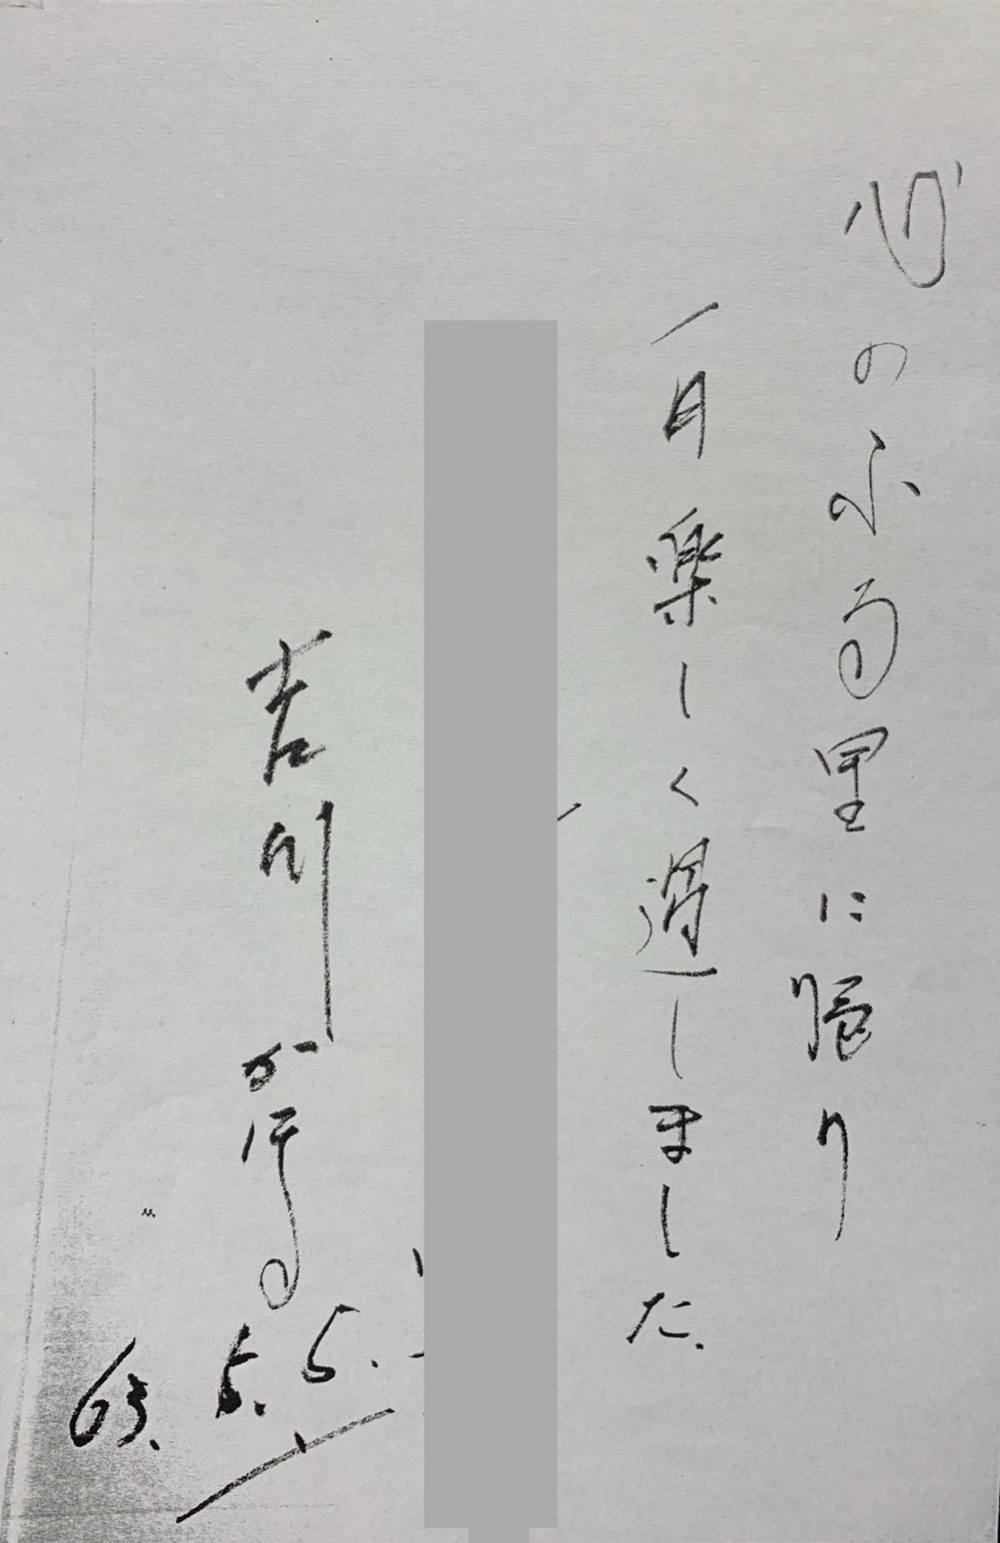 心のふる里に帰り
一日楽しく過しました
吉川かほる
63.5.5.